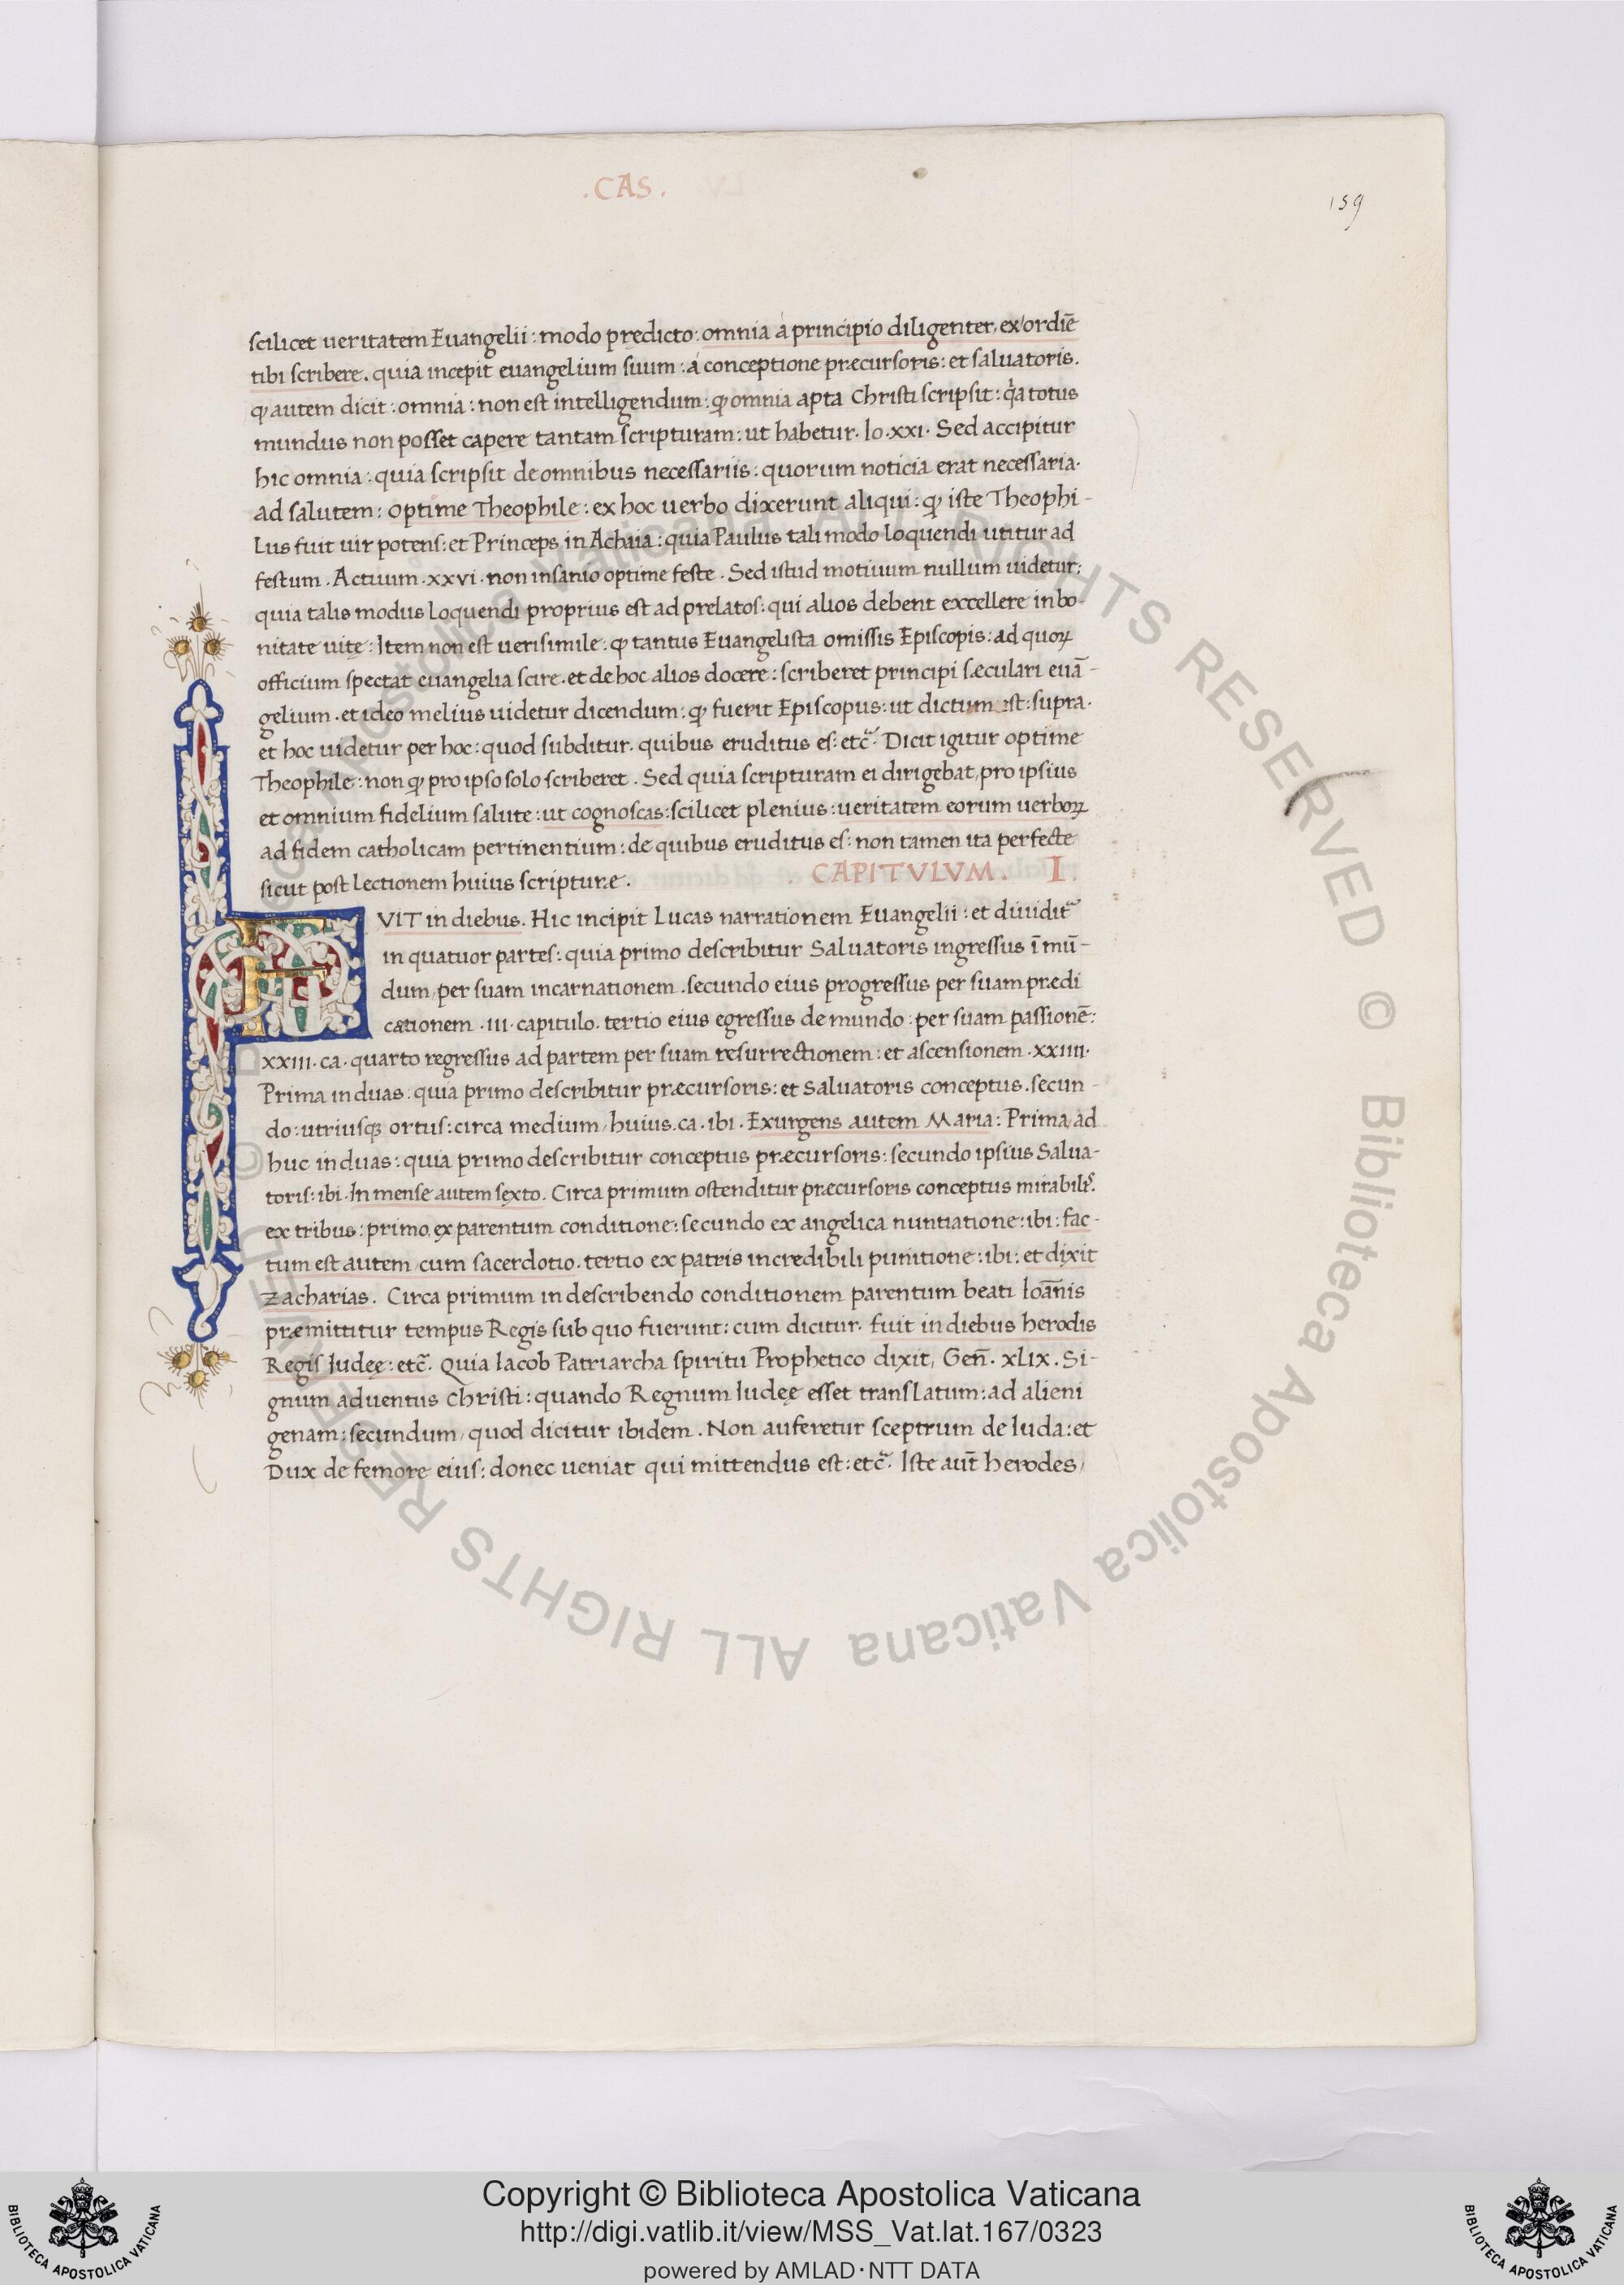 .CAS.
159
scilicet ueritatem Euangelii : modo predicto : omnia á principio diligenter, ex ordiē
tibi scribere. quia incepit euangelium suum : á conceptione præcursoris : et saluatoris.
ꝙ autem dicit : omnia : non est intelligendum : ꝙ omnia apta Christi scripsit : q̇a totus
mundus non posset capere tantam scripturam : ut habetur. Io. xxi. Sed accipitur
hic omnia : quia scripsit de omnibus necessariis : quorum noticia erat necessaria.
ad salutem : optime Theophile : ex hoc uerbo dixerunt aliqui : ꝙ iste Theophi-
Lus fuit uir potens : et Princeps in Achaia : quia Paulus tali modo loquendi utitur ad
festum . Actuum . xxvi . non insanio optime feste . Sed istud motiuum nullum uidetur :
quia talis modus Loquendi proprius est ad prelatos : qui alios debent excellere in bo-
nitate uitę : Item non est uerisimile : ꝙ tantus Euangelista omissis Episcopis : ad quoꝝ
officium spectat euangelia scire . et de hoc alios docere : scriberet principi sæculari euā-
gelium . et ideo melius uidetur dicendum : ꝙ fuerit Episcopus : ut dictum est : supra.
et hoc uidetur per hoc : quod subditur. quibus eruditus es : etc̃. Dicit igitur optime
Theophile : non ꝙ pro ipso solo scriberet . Sed quia scripturam ei dirigebat, pro ipsius
et omnium fidelium salute : ut cognoscas : scilicet plenius : ueritatem eorum uerboꝝ
ad fidem catholicam pertinentium : de quibus eruditus es : non tamen ita perfecte
sicut post Lectionem huius scripturæ.
. CAPITVLVM. I.
FVIT in diebus. Hic incipit Lucas narrationem Euangelii : et diuidit᷑
in quatuor partes : quia primo describitur Saluatoris ingressus ī mū-
dum, per suam incarnationem . secundo eius progressus per suam prædi
cationem . III . capitulo. tertio eius egressus de mundo : per suam passionē :
xxIII . ca . quarto regressus ad partem per suam resurrectionem : et ascensionem . xxIIII .
Prima in duas : quia primo describitur præcursoris : et Saluatoris conceptus . secun-
do : utriusqꝫ ortus : circa medium, huius . ca . ibi . Exurgens autem Maria : Prima, ad
huc in duas : quia primo describitur conceptus præcursoris : secundo ipsius Salua-
toris : ibi . In mense autem sexto. Circa primum ostenditur præcursoris conceptus mirabilis.
ex tribus : primo, ex parentum conditione : secundo ex angelica nuntiatione : ibi : fac-
tum est autem, cum sacerdotio. tertio ex patris incredibili punitione : ibi : et dixit
Zacharias. Circa primum in describendo conditionem parentum beati Ioānis
præmittitur tempus Regis sub quo fuerunt : cum dicitur. fuit in diebus herodis
Regis Iudeę : etc̃. Quia Iacob Patriarcha spiritu Prophetico dixit, Geñ. xLIx . Si-
gnum aduentus Christi : quando Regnum Iudeę esset transLatum : ad alieni
genam : secundum, quod dicitur ibidem . Non auferetur sceptrum de Iuda : et
Dux de femore eius : donec ueniat qui mittendus est : etc̃. Iste aut̄ herodes,
© Biblioteca Apostolica Vaticana ALL RIGHTS RESERVED
© Biblioteca Apostolica Vaticana ALL RIGHTS RESERVED
Copyright © Biblioteca Apostolica Vaticana
http://digi.vatlib.it/view/MSS_Vat.lat.167/0323
powered by AMLAD·NTT DATA
BIBLIOTECA APOSTOLICA VATICANA
BIBLIOTECA APOSTOLICA VATICANA